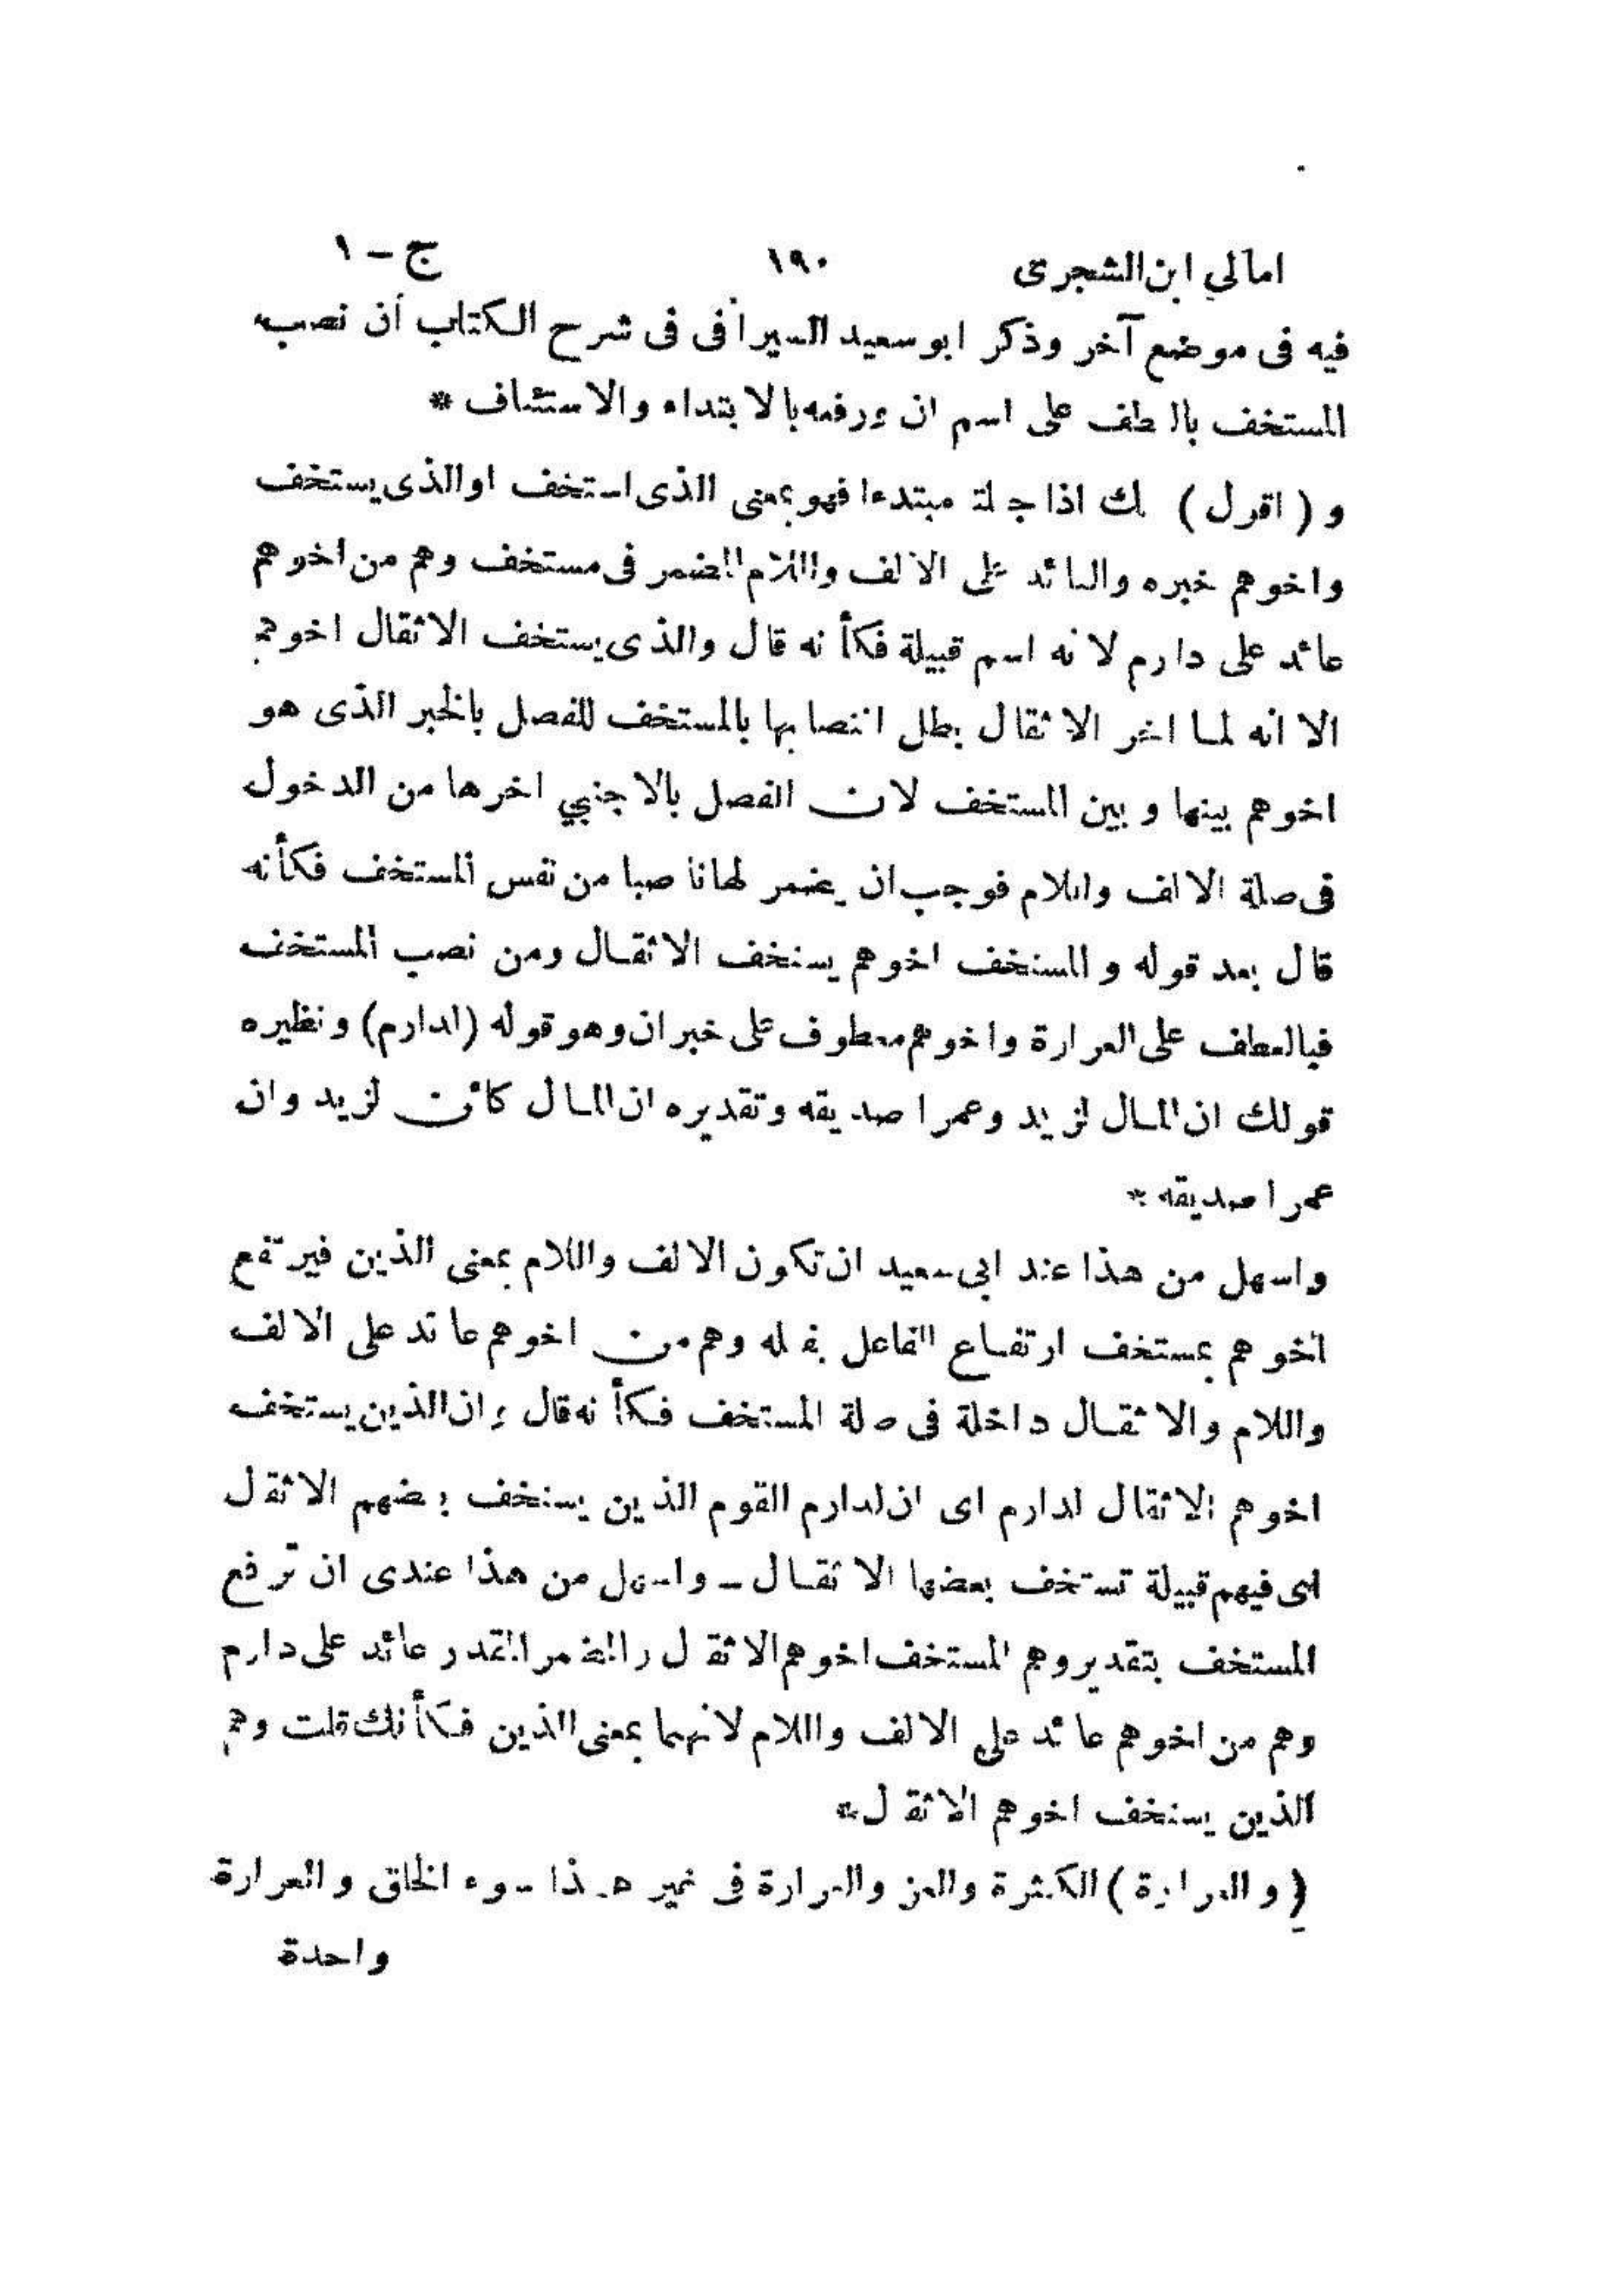 امالي ابن الشجرى ١٩٠ ج - ١
فيه فى موضع آخر وذكر ابو سعيد السيرافى فى شرح الكتاب أن نصب
المستخف بالعطف على اسم ان ورفعه بالابتداء والاستئناف *
و ( اقول ) انك اذا جعلته مبتدءا فهو بمعنى الذى استخف او الذى يستخف
واخوهم خبره والعائد على الالف واللام المضمر فى مستخف وهم من اخوهم
عائد على دارم لانه اسم قبيلة فكأنه قال والذى يستخف الاثقال اخوهم
الا انه لما اخر الاثقال بطل انتصابها بالمستخف للفصل بالخبر الذى هو
اخوهم بينها وبين المستخف لان الفصل بالاجنبي اخرها من الدخول
فى صلة الالف واللام فوجب ان يضمر لها ناصبا من نفس المستخف فكأنه
قال بعد قوله والمستخف اخوهم يستخف الاثقال ومن نصب المستخف
فبالعطف على العرارة واخوهم معطوف على خبر ان وهو قوله (لدارم) ونظيره
قولك ان المال لزيد وعمرا صديقه وتقديره ان المال كائن لزيد وان
عمرا صديقه *
واسهل من هذا عند ابى سعيد ان تكون الالف واللام بمعنى الذين فيرتفع
اخوهم بمستخف ارتفاع الفاعل بفعله وهم من اخوهم عائد على الالف
واللام والاثقال داخلة فى صلة المستخف فكأنه قال وان الذين يستخف
اخوهم الاثقال لدارم اى ان لدارم القوم الذين يستخف بعضهم الاثقال
اى فيهم قبيلة تستخف بعضها الاثقال - واسهل من هذا عندى ان ترفع
المستخف بتقدير وهم المستخف اخوهم الاثقال والمضمر المقدر عائد على دارم
وهم من اخوهم عائد على الالف واللام لانهما بمعنى الذين فكأنك قلت وهم
الذين يستخف اخوهم الاثقال *
( والعرارة ) الكثرة والعز والعرارة فى غير هذا سوء الخلق والعرارة
واحدة